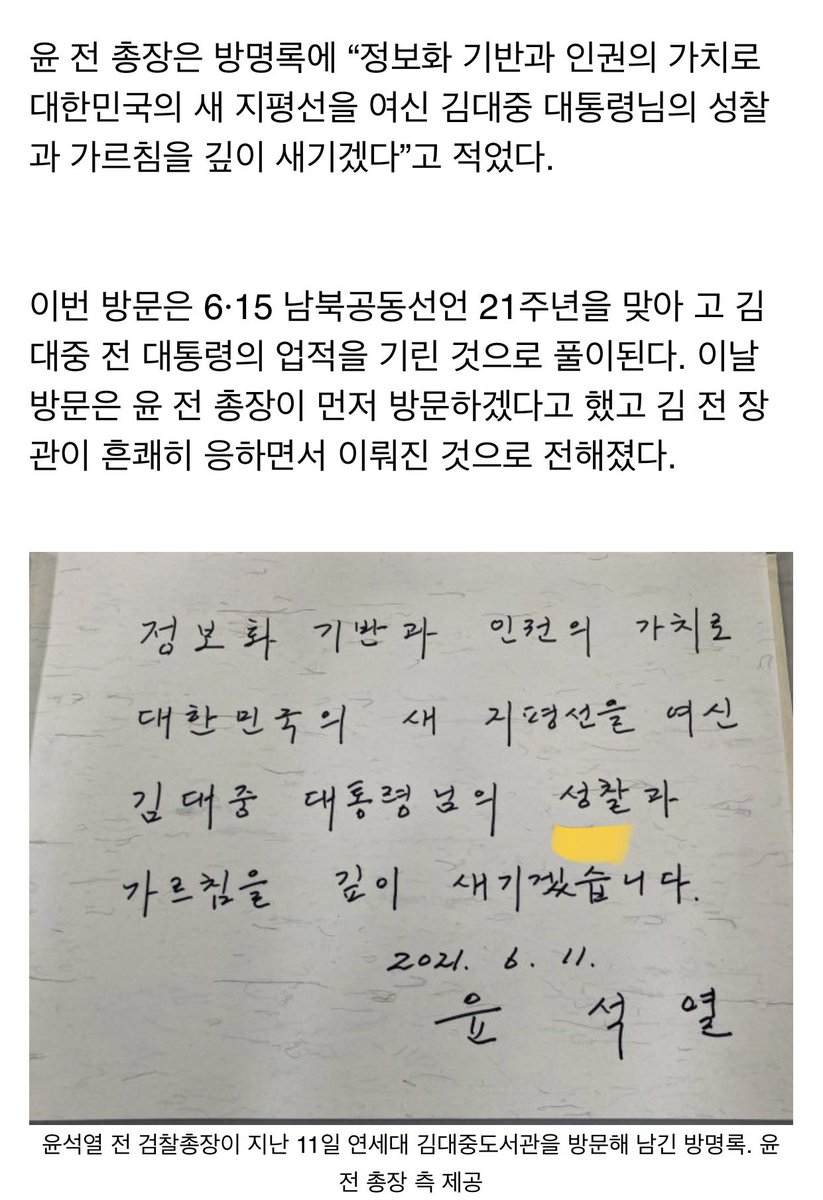 윤 전 총장은 방명록에 “정보화 기반과 인권의 가치로
대한민국의 새 지평선을 여신 김대중 대통령님의 성찰
과 가르침을 깊이 새기겠다”고 적었다.
이번 방문은 6·15 남북공동선언 21주년을 맞아 고 김
대중 전 대통령의 업적을 기린 것으로 풀이된다. 이날
방문은 윤 전 총장이 먼저 방문하겠다고 했고 김 전 장
관이 흔쾌히 응하면서 이뤄진 것으로 전해졌다.
정보화 기반과 인권의 가치로
대한민국의 새 지평선을 여신
김대중 대통령님의 성찰과
가르침을 깊이 새기겠습니다.
2021. 6. 11.
윤 석 열
윤석열 전 검찰총장이 지난 11일 연세대 김대중도서관을 방문해 남긴 방명록. 윤
전 총장 측 제공